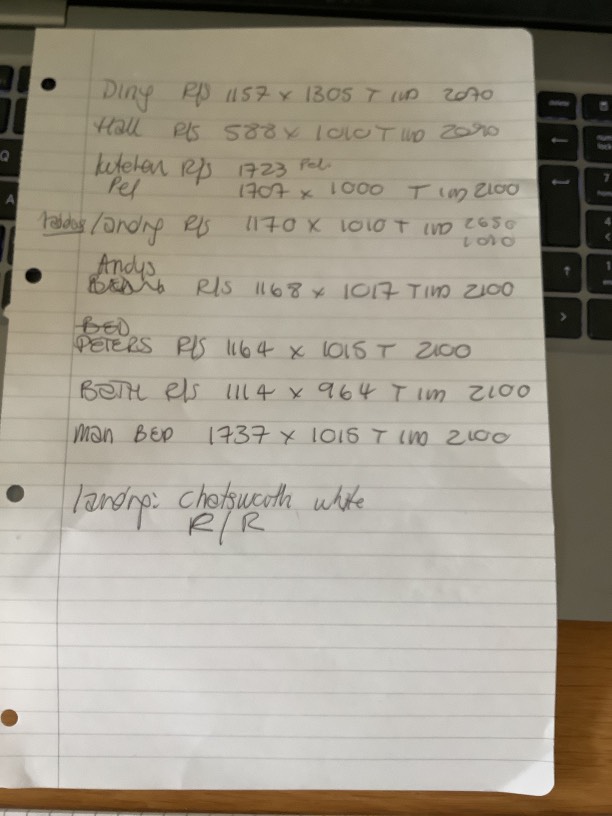 Diny R/S 1157 x 1305 T IM 2070
Hall R/S 588 x 1010 T IM 2090
R/S 1723 Pel
Pel 1707 x 1000 T IM 2100
/landry R/S 1170 x 1010 T IM 2650
1010
Andys
R/S 1168 x 1017 T IM 2100
BED
PETERS R/S 1164 x 1015 T 2100
BOTH R/S 1114 x 964 T IM 2100
Man BED 1737 x 1015 T IM 2100
landry: Chatsworth white
R/R